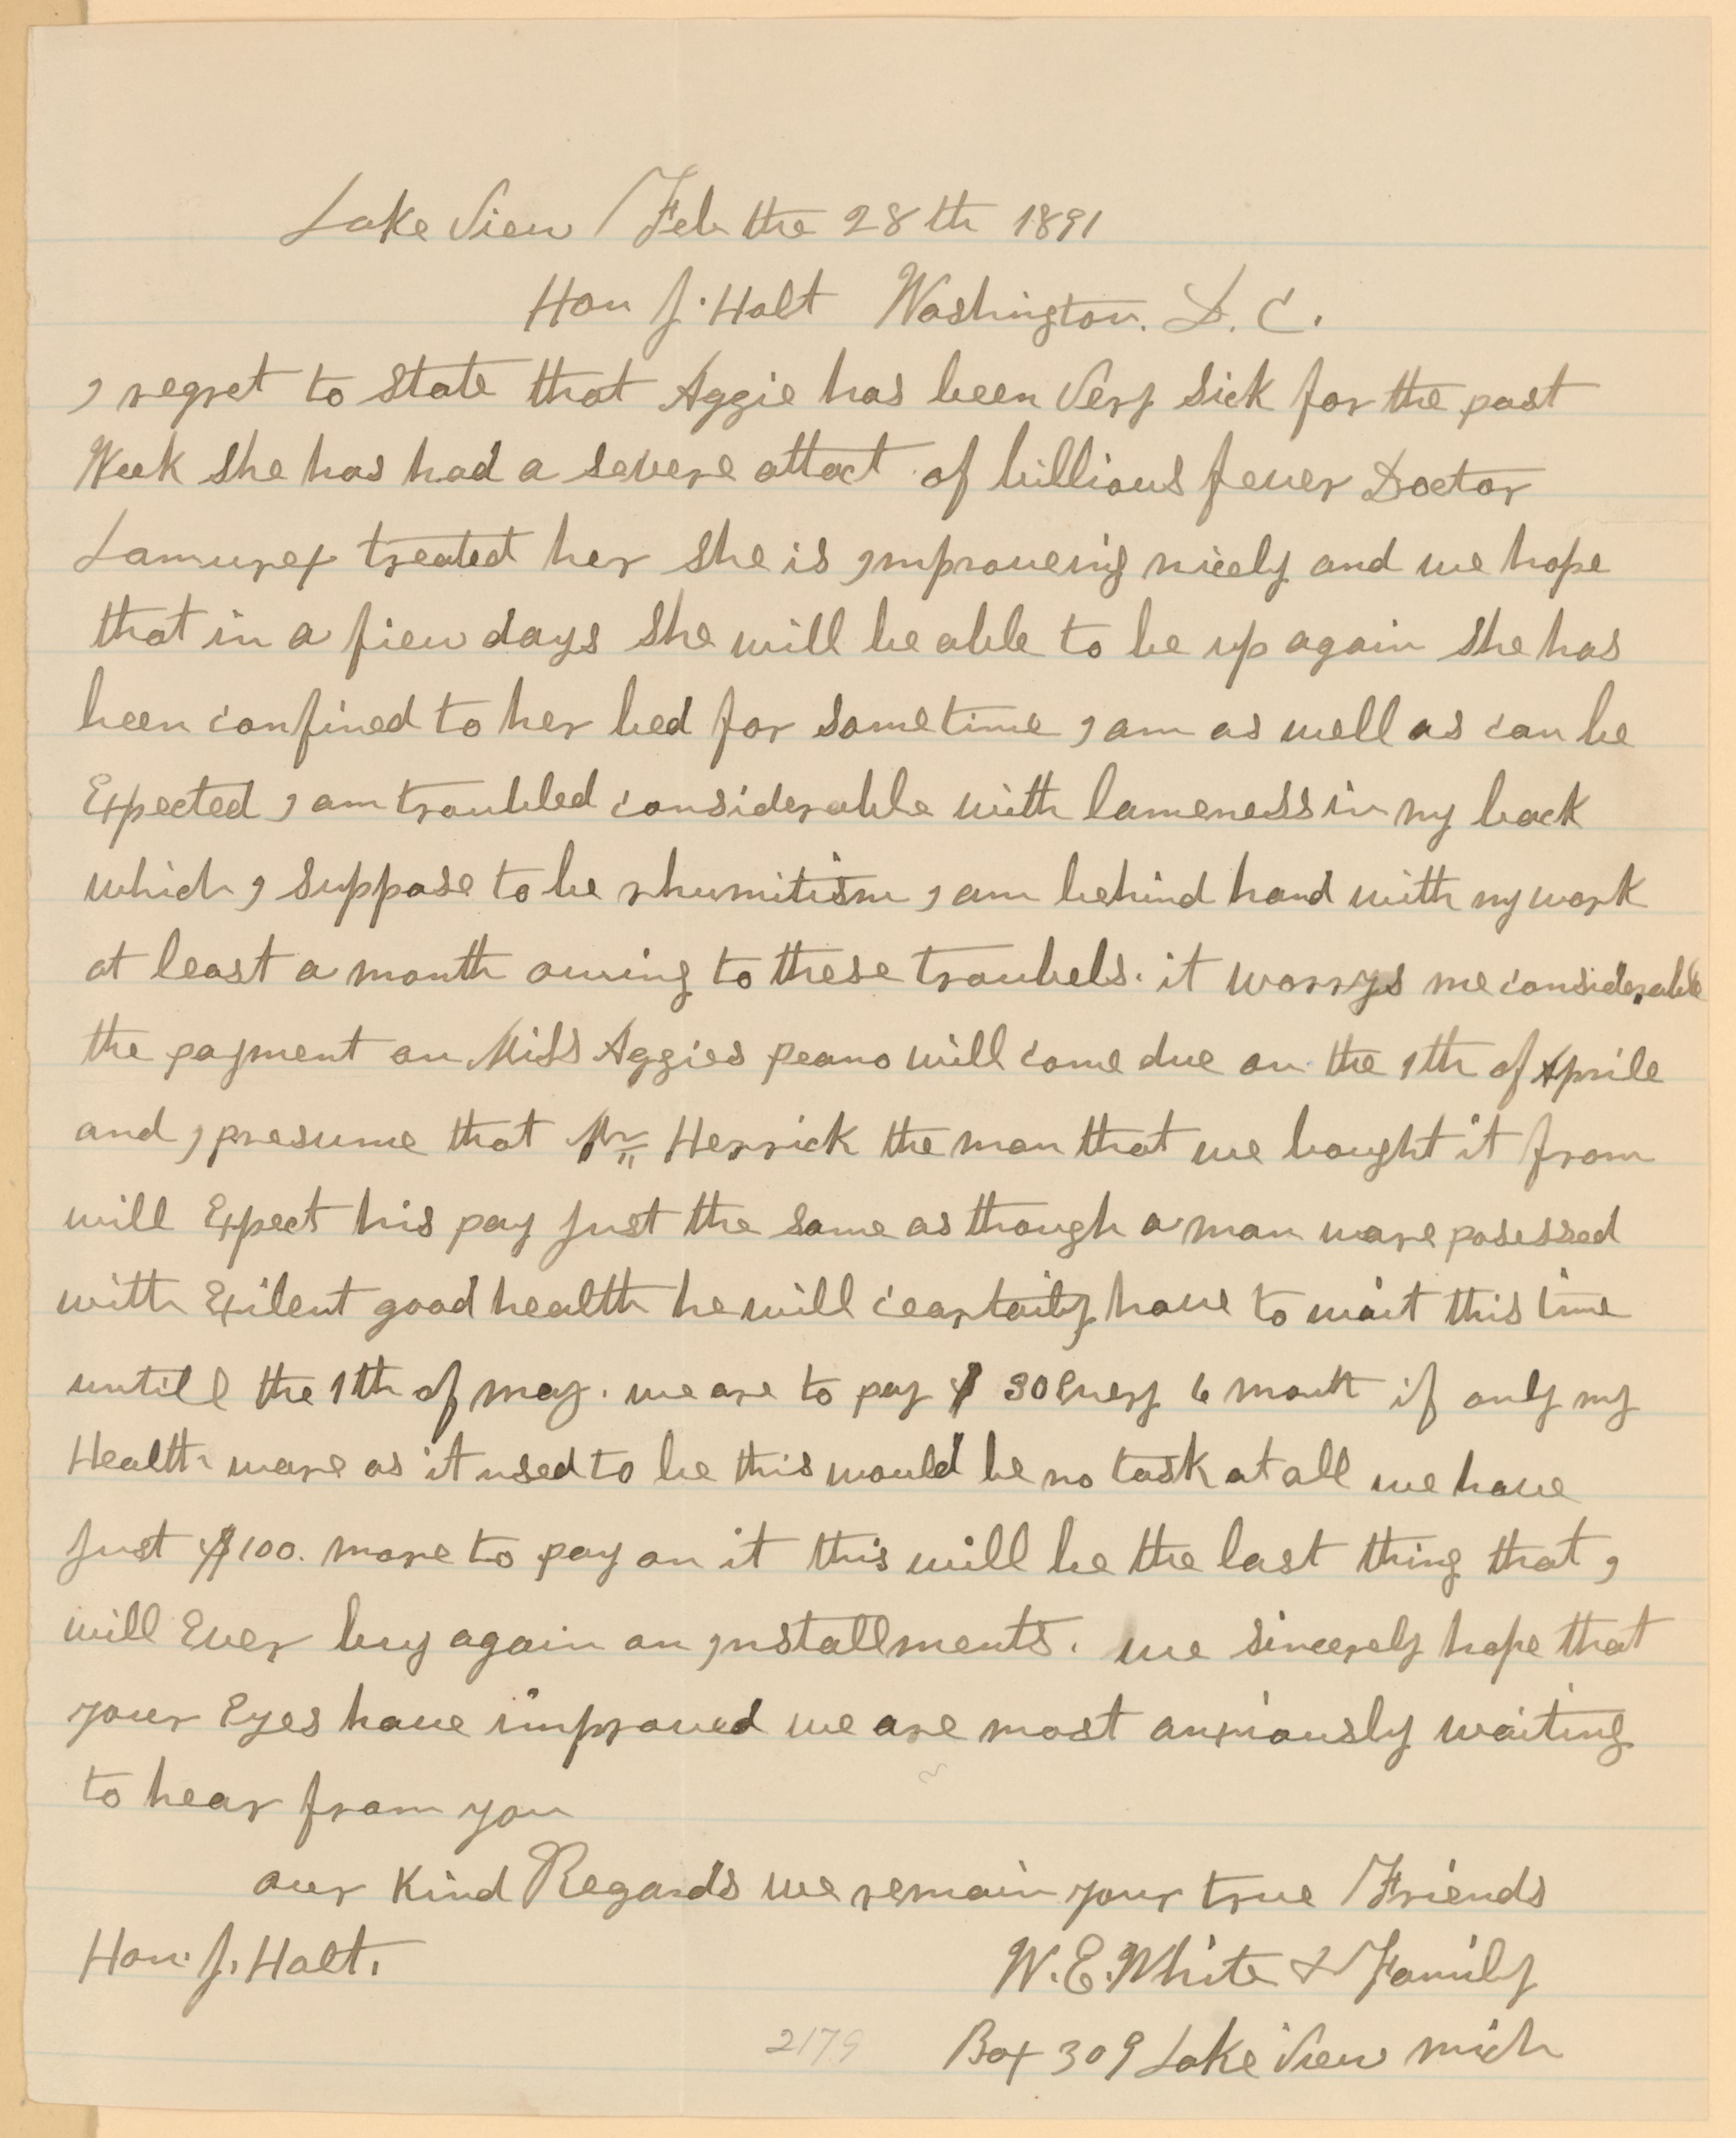 Lake View Feb the 28th 1891
Hon J. Holt Washington. D. C.
I regret to state that Aggie has been Very sick for the past
Week she has had a severe attact of billious fever Doctor
Lamurex treated her she is improveing nicely and we hope
that in a fiew days she will be able to be up again she has
been confined to her bed for sometime I am as well as can be
Expected I am troubled considerable with lameness in my back
which I suppose to be rhumitism I am behind hand with my work
at least a month owing to these troubels. it worrys me considerable
the payment on Miss Aggies peano will come due on the 1th of Aprile
and I presume that Mr Herrick the man that we bought it from
will Expect his pay just the same as though a man ware posessed
with Exilent good health he will ceartaily have to wait this time
untill the 1th of may. we are to pay $ 30 Every 6 month if only my
Health ware as it used to be this would be no task at all we have
just $100. more to pay on it this will be the last thing that I
will Ever buy again on installments. we sincerely hope that
your Eyes have improved we are most anxiously waiting
to hear from you
our Kind Regards we remain your true Friends
Hon. J. Holt.
W. E. White & Family
Box 309 Lake View mich
2179